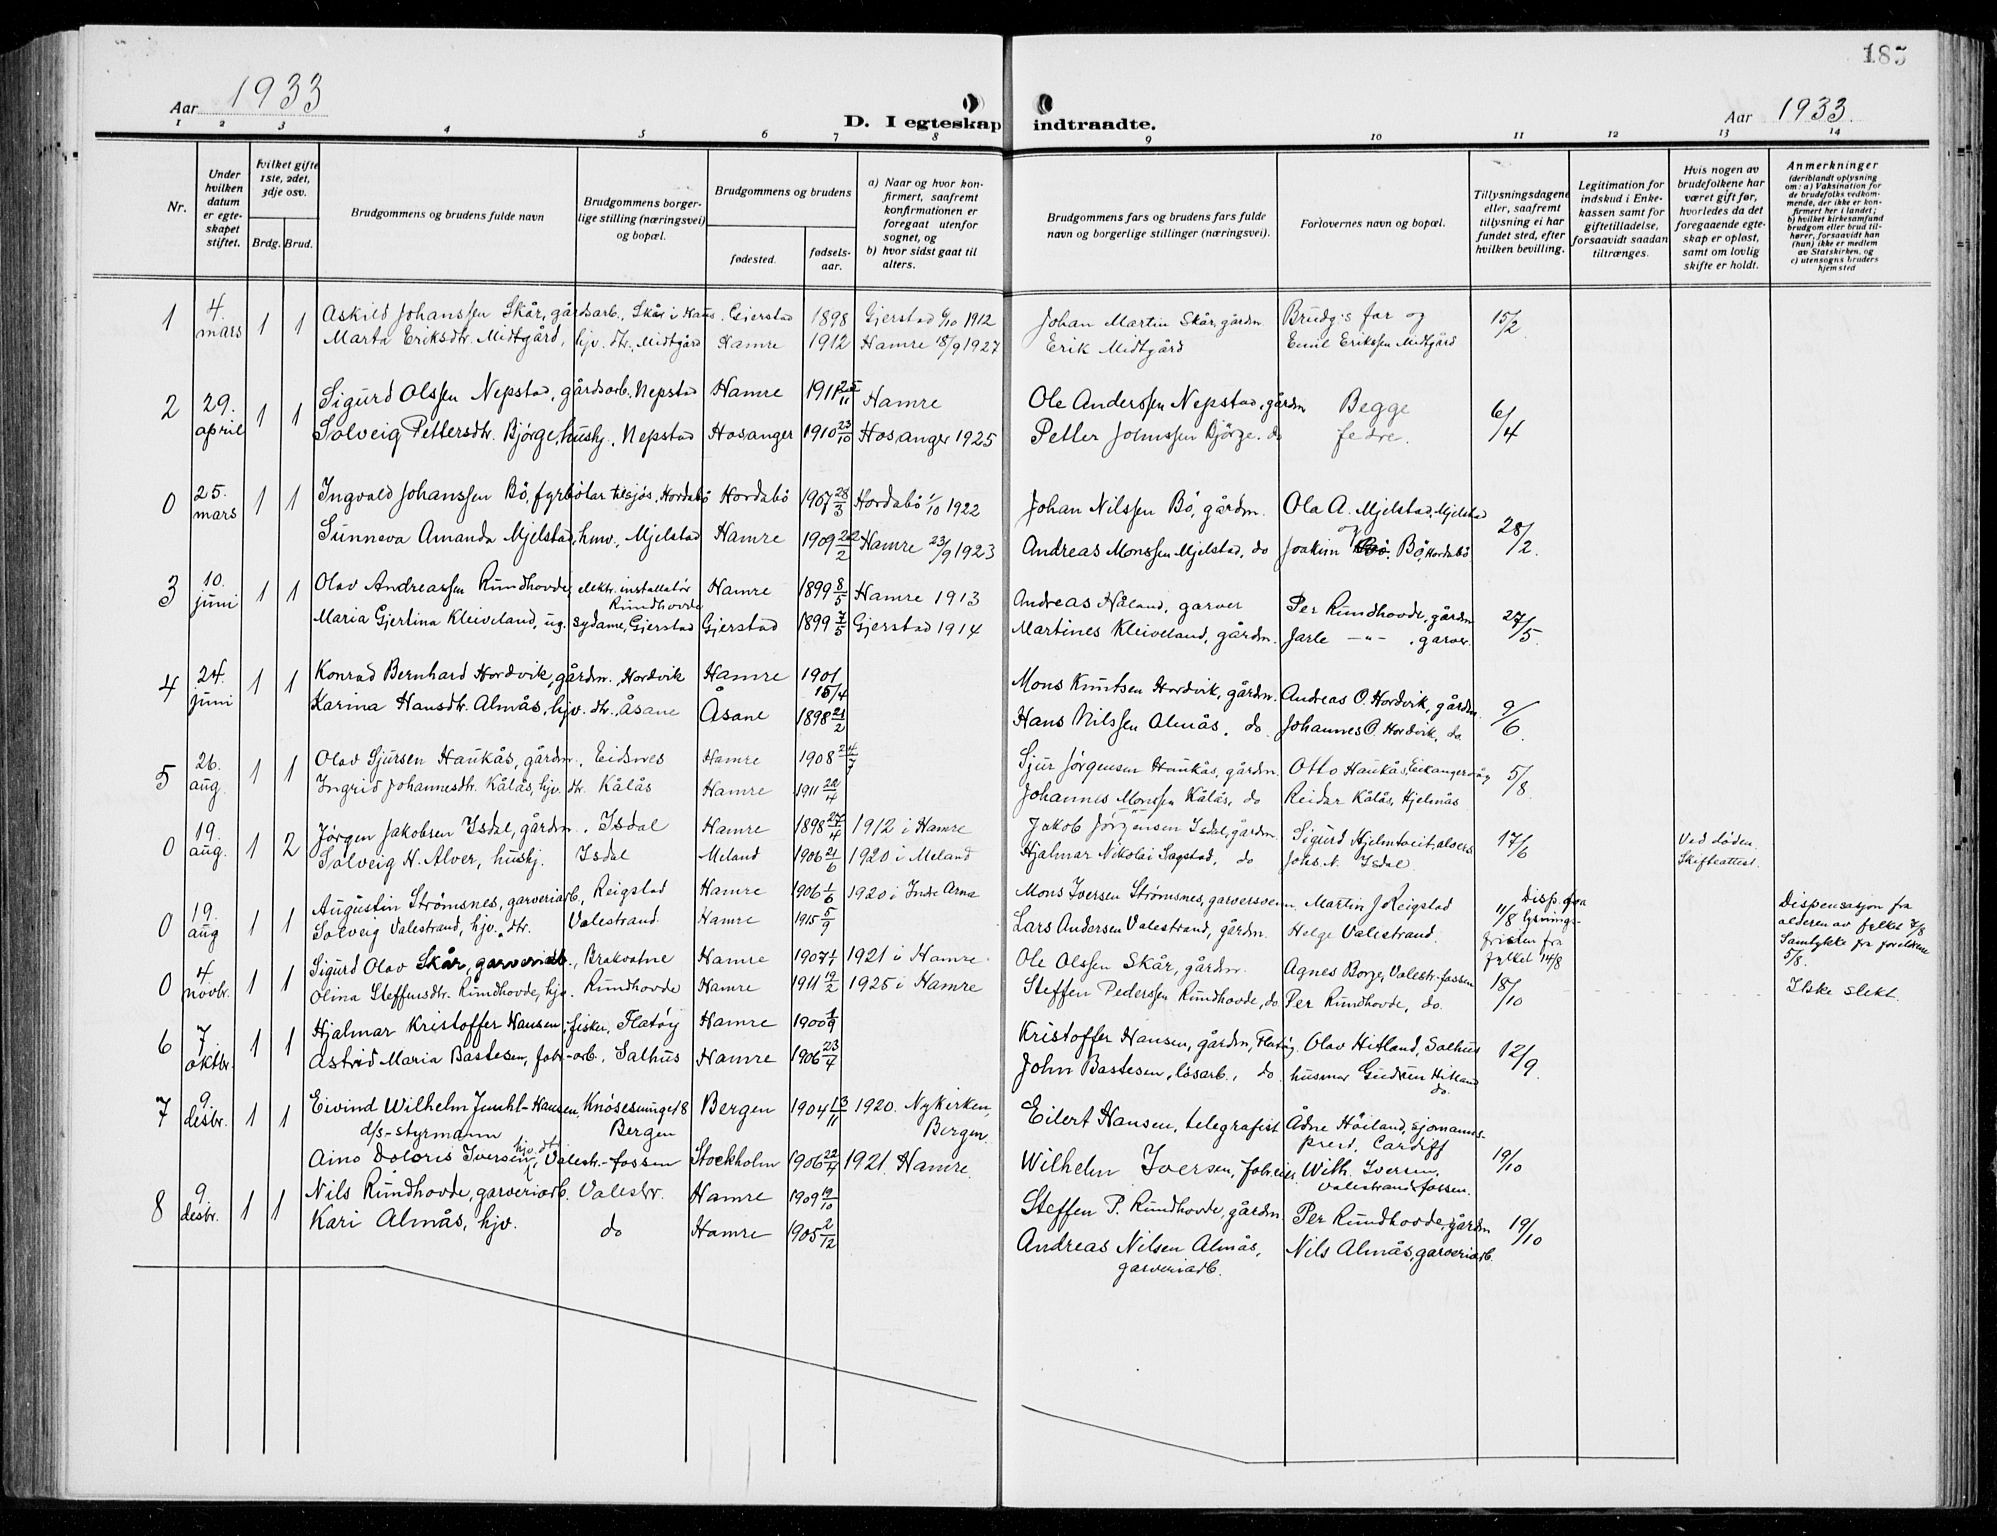 185
Aar 1933
D. I egteskap indtraadte.
Aar 1933.
1 2 3 4 5 6 7 8 9 10 11 12 13 14
Nr.
Under hvilken datum er egteskapet stiftet.
Hvilket gifte 1ste, 2det, 3dje osv.
Brdg. Brud.
Brudgommens og brudens fulde navn
Brudgommens borgerlige stilling (næringsvei) og bopæl.
Brudgommens og brudens
fødested. fødselsaar.
a) Naar og hvor konfirmert, saafremt konfirmationen er foregaat utenfor sognet, og
b) hvor sidst gaat til alters.
Brudgommens fars og brudens fars fulde navn og borgerlige stillinger (næringsvei).
Forlovernes navn og bopæl.
Tillysningsdagene eller, saafremt tillysning ei har fundet sted, efter hvilken bevilling.
Legitimation for indskud i Enkekassen samt for giftetilladelse, forsaavidt saadan tiltrænges.
Hvis nogen av brudefolkene har været gift før, hvorledes da det foregaaende egteskap er opløst, samt om lovlig skifte er holdt.
Anmerkninger
(deriblandt oplysning om: a) Vaksination for de brudefolks vedkommende, der ikke er konfirmert her i landet; b) hvilket kirkesamfund brudgom eller brud tilhører, forsaavidt han (hun) ikke er medlem av Statskirken, og c) utensogns bruders hjemsted
1 4. mars 1 1 Askild Johanssen Skår, gårdsarb., Skår i Haus. Gjerstad 1898 Gjerstad 6/10 1912 Johan Martin Skår, gårdm. Brudg:s far og 15/2
Marta Eriksdtr. Midtgård, hjv. dtr., Midtgård Hamre 1912 Hamre 18/9 1927 Erik Midtgård Emil Erikssen Midtgård
2 29. april 1 1 Sigurd Olssen Nepstad, gårdsarb. Nepstad Hamre 1911 25/11 Hamre Ole Anderssen Nepstad, gårdm Begge 6/4
Solveig Pettersdtr. Bjørge, hushj., Nepstad Hosanger 1910 23/10 Hosanger 1925 Petter Johnssen Bjørge. do fedre.
0 25. mars 1 1 Ingvald Johanssen Bö, fyrbötar tilsjös, Hordabö Hordabö 1907 28/3 Hordabö 1/10 1922 Johan Nilssen Bö, gårdm. Ola A. Mjelstad, Mjelstad og 28/2.
Sunneva Amanda Mjelstad, hmv., Mjelstad Hamre 1909 22/2 Hamre 23/9 1923 Andreas Monssen Mjelstad, do Joakim Bö, Hordabö
3 10. juni 1 1 Olav Andreassen Rundhovde, elektr. installatör Rundhovde Hamre 1899 8/5 Hamre 1913 Andreas Håland, garver Per Rundhovde, gårdm 27/5.
Maria Gjertina Kleiveland, ug. sydame, Gjerstad Gjerstad 1899 7/5 Gjerstad 1914 Martines Kleiveland, gårdm. Jarle —"— , garver.
4 24. juni 1 1 Konrad Bernhard Hordvik, gårdm., Hordvik Hamre 1901 15/4 Mons Knutsen Hordvik, gårdm. Andreas O. Hordvik, gårdm. 9/6.
Karina Hansdtr. Almås, hjv. dtr., Åsane Åsane 1898 21/2 Hans Nilssen Almås, do. Johannes O. Hordvik, do
5 26. aug. 1 1 Olav Sjursen Haukås, gårdm., Eidsnes Hamre 1908 24/7 Sjur Jörgensen Haukås, gårdm. Otto Haukås, Eikangervåg 5/8.
Ingrid Johannesdtr. Kålås, hjv. dtr. Kålås Hamre 1911 22/4 Johannes Monssen Kålås, do Reidar Kålås, Hjelmås
0 19. aug. 1 2 Jörgen Jakobsen Isdal, gårdm., Isdal Hamre 1898 27/4 1912 i Hamre Jakob Jörgensen Isdal, gårdm. Sigurd Hjelmtveit, alvers 17/6 Ved döden.
Solveig N. Alver, hushj. Isdal Meland 1906 21/6 1920 i Meland Hjalmar Nikolai Sagstad, do Johs N. Isdal Skifteattest.
0 19. aug 1 1 Augustin Strömsnes, garveriarb., Reigstad Hamre 1906 1/6 1920 i Indre Arna Mons Iversen Strömsnes, garversvenn. Martin J Reigstad 11/8 Disp. fra lysningsfristen fra fylket 14/8 Dispensasjon fra alderen av fylket 7/8 Samtykke fra foreldrene 5/8.
Solveig Valestrand, hjv. dtr. Valestrand. Hamre 1915 5/9 Lars Andersen Valestrand, gårdm. Helge Valestrand.
0 4 novbr. 1 1 Sigurd Olav Skår, garveriarb., Brakvatne Hamre 1907 1/1 1921 i Hamre. Ole Olssen Skår, gårdm. Agnes Borge, Valestr.-fossen 18/10 Ikke slekt.
Olina Steffensdtr. Rundhovde, hjv. Rundhovde Hamre 1911 19/2 1925 i Hamre Steffen Pederssen Rundhovde, do Per Rundhovde, do.
6 7 oktbr. 1 1 Hjalmar Kristoffer Hansen, fisker, Flatöy Hamre 1900 1/9 Kristoffer Hansen, gårdm, Flatöy. Olav Hitland, Salhus 12/9.
Astrid Maria Bastesen, fabr-arb. Salhus Hamre 1906 23/4 John Bastesen, lösarb., do. husmor Gudrun Hitland do.
7 9. desbr. 1 1 Eivind Wilhelm Juuhl-Hansen, Knösesmuget 8 Bergen 1904 13/11 1920. Nykirken, Bergen. Eilert Hansen, telegrafist Ådne Höiland, sjömannsprest, Cardiff 19/10
d/s-styrmann Bergen
Aino Doloris Iversen, hjv. dtr. Valestr.-fossen Stockholm 1906 22/7 1921. Hamre. Wilhelm Iversen, fabr.eier. Wilh. Iversen, Valestrandsfossen.
8 9. desbr. 1 1 Nils Rundhovde, garveriarb. Valestr. Hamre 1909 19/10 Steffen P. Rundhovde, gårdm. Per Rundhovde, gårdm 19/10
Kari Almås, hjv. do Hamre 1905 2/12 Andreas Nilsen Almås, garveriarb. Nils Almås, garveriarb.